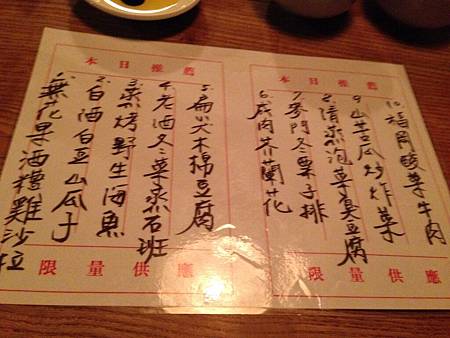 本日推薦
1.無花果酒糟雞沙拉
2.白酒白豆山瓜子
3.蒸烤野生海魚
4.老酒冬菜蒸石班
5.扁尖木棉豆腐
限量供應
本日推薦
6.咸肉芥蘭花
7.麥門冬栗子排
8.清蒸泡菜臭豆腐
9.山苦瓜炒炸菜
10.福岡酸菜牛肉
限量供應